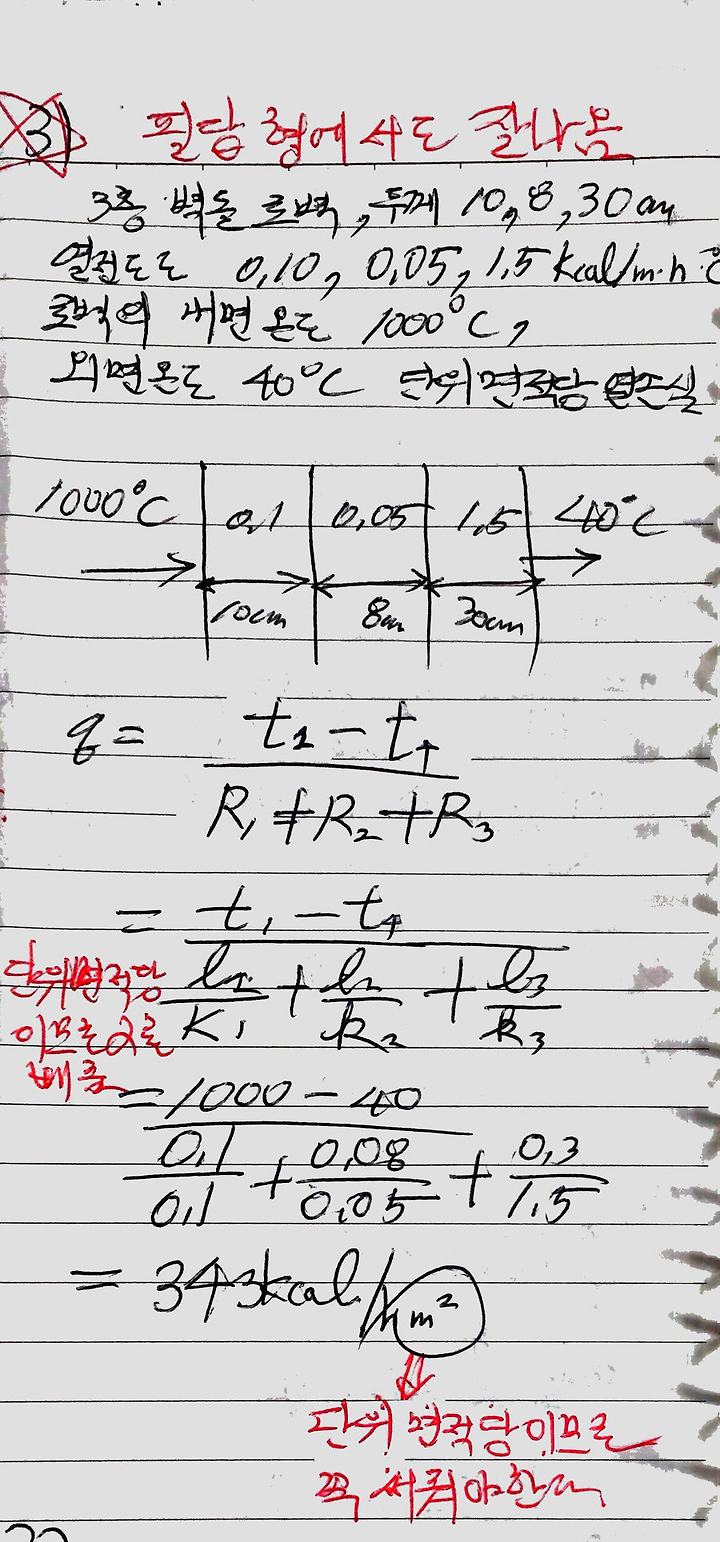 31 필답형에서도 잘나옴
3층 벽돌 로벽, 두께 10, 8, 30cm
열전도도 0.10, 0.05, 1.5 kcal/m·h·℃
로벽의 내면온도 1000℃,
외면온도 40℃ 단위면적당 열손실
1000℃ 0.1 0.05 1.5 40℃
10cm 8cm 30cm
q = t1 - t4
R1 + R2 + R3
= t1 - t4
l1/k1 + l2/k2 + l3/k3
단위면적당
이므로 α로
= 1000 - 40
0.1/0.1 + 0.08/0.05 + 0.3/1.5
= 343kcal/h m²
⇓
단위면적당이므로
꼭 써줘야한다